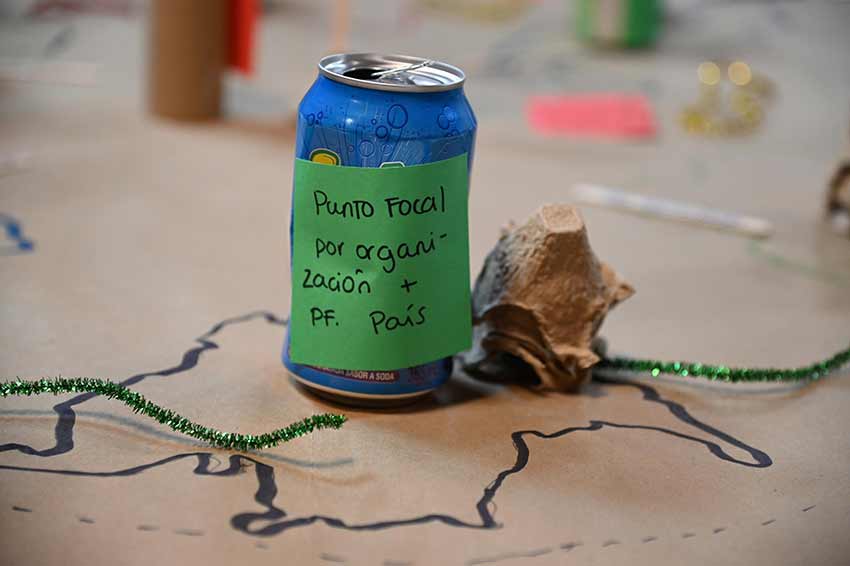 Punto Focal
por organi-
zación +
PF. País
SABOR A SODA